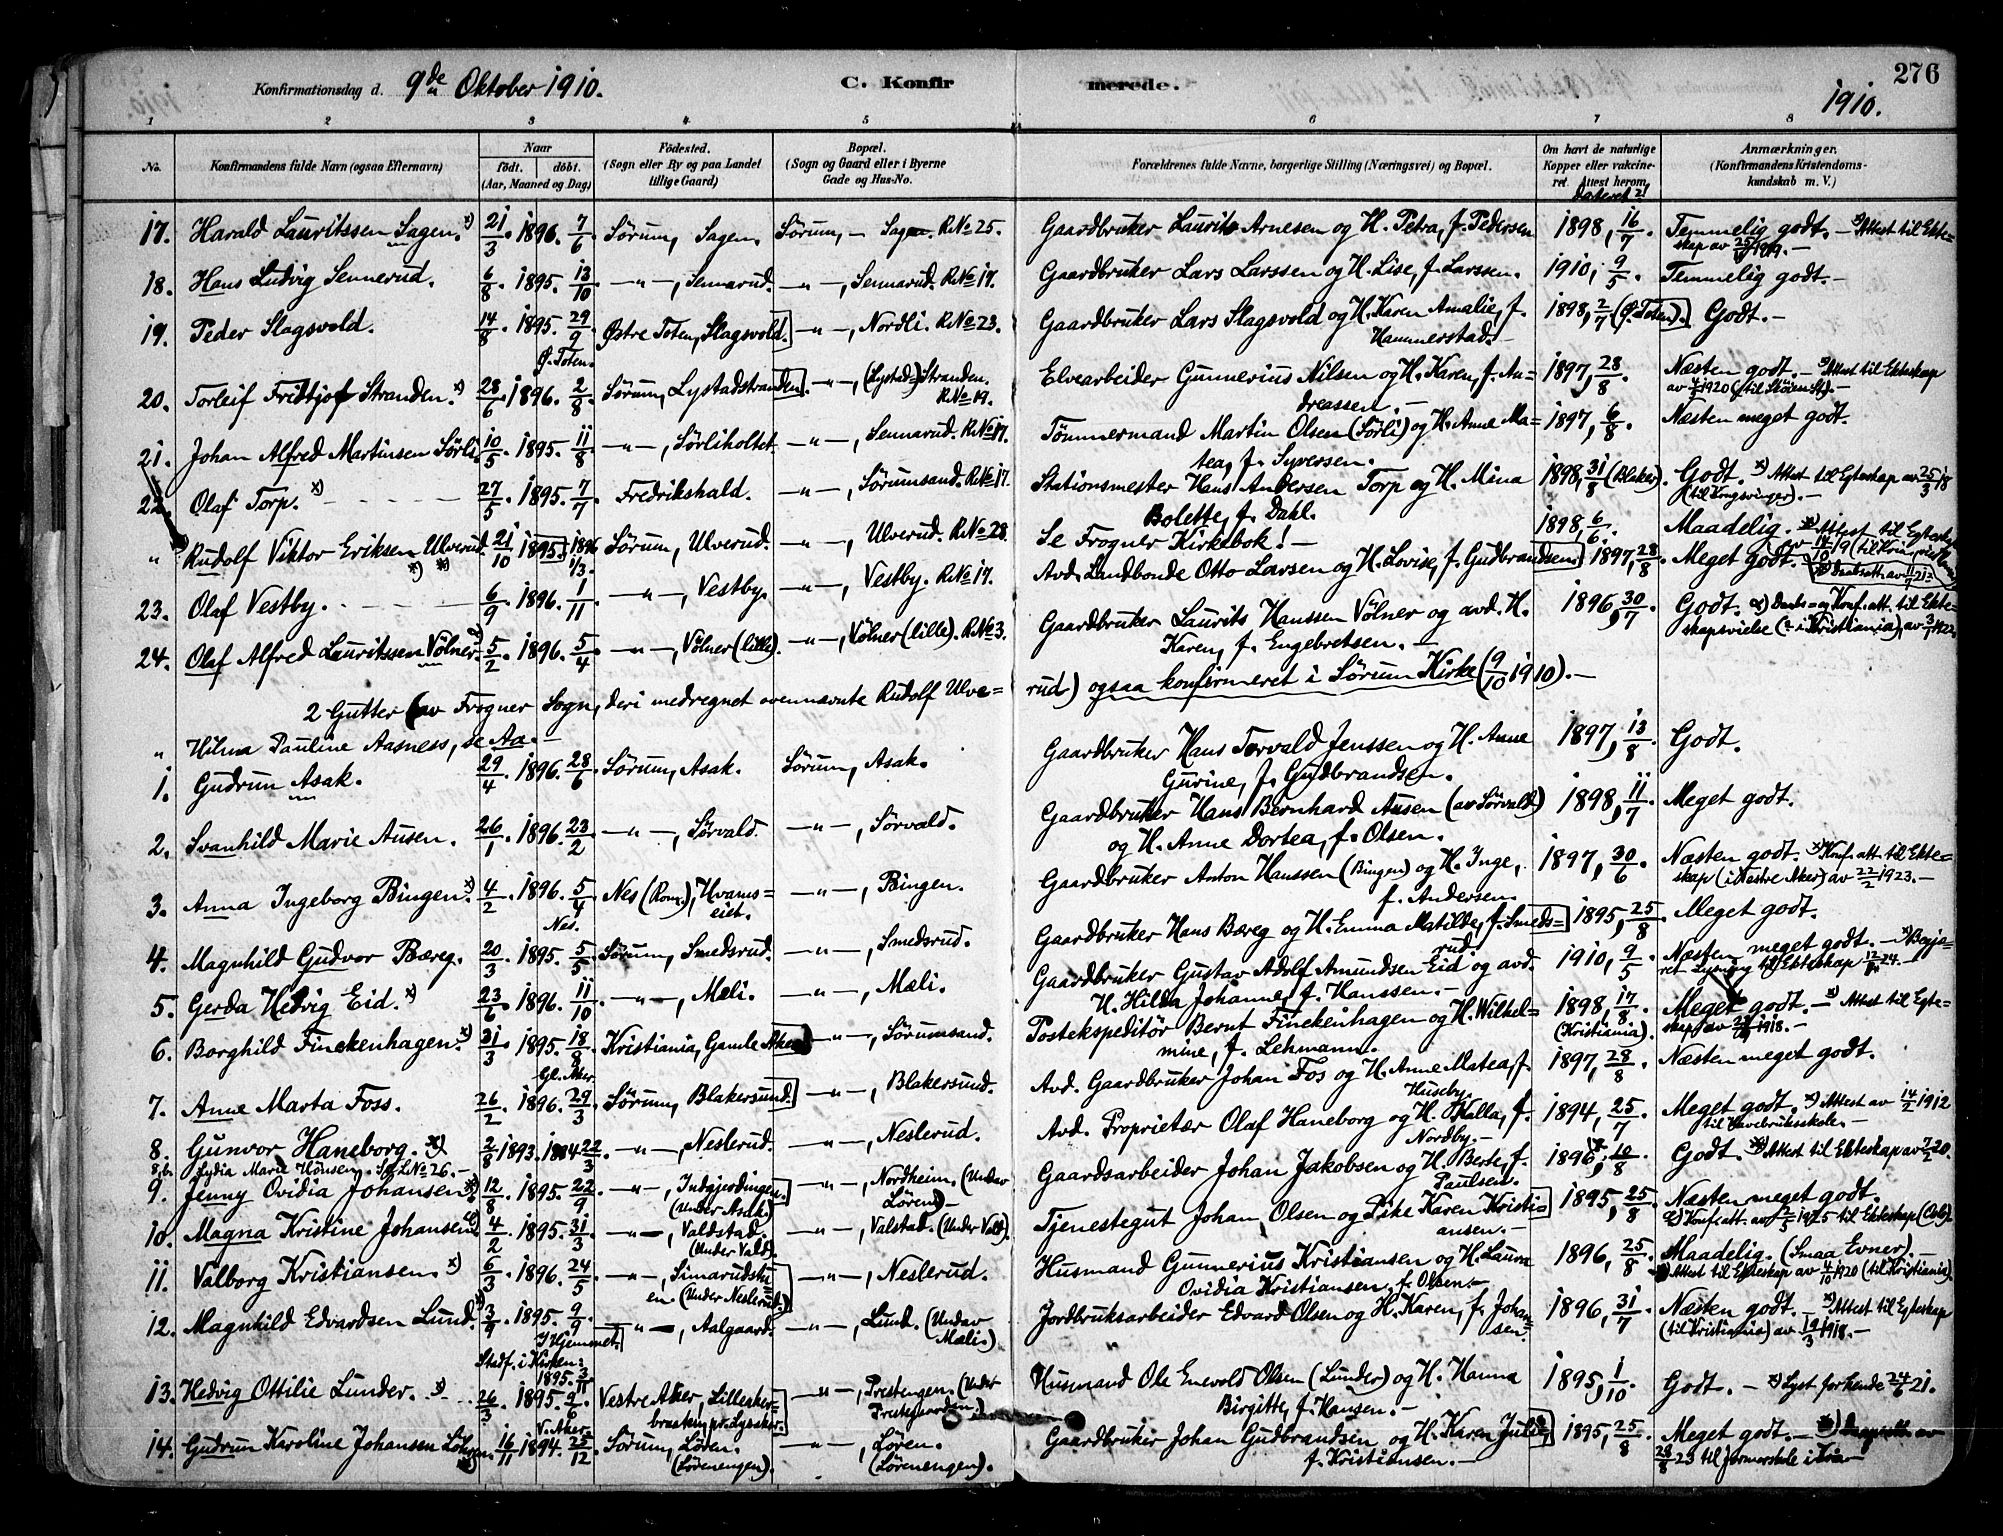 276
Konfirmationsdag d. 9de Oktober 1910. C. Konfirmerede. 1910.
1 2 3 4 5 6 7 8
No. Konfirmandens fulde Navn (ogsaa Efternavn) Naar født. døbt. (Aar, Maaned og Dag) Fødested. (Sogn eller By og paa Landet tillige Gaard) Bopæl. (Sogn og Gaard eller i Byerne Gade og Hus-No. Forældrenes fulde Navne, borgerlige Stilling (Næringsvei) og Bopæl. Om havt de naturlige Kopper eller vakcineret. Attest herom, dateret? Anmærkninger. (Konfirmandens Kristendomskundskab m. V.)
17. Harald Lauritssen Sagen. x) 21/3. 1896. 7/6. Sørum, Sagen. Sørum, – Sagen. R.No 25. Gaardbruker Laurits Arnesen og H. Petra, f. Pedersen 1898, 16/7. Temmelig godt. – x) Attest til Ekte=
skap av 25/ 1919. –
18. Hans Ludvig Sennerud. 6/8. 1895. 13/10 –"–, Sennarud. –"–, Sennarud. R.No 17. Gaardbruker Lars Larssen og H. Lise, f. Larssen. 1910, 9/5. Temmelig godt. –
19. Peder Slagsvold. 14/8. 1895. 29/9 Østre Toten, Slagsvold. –"–, Nordli. R.No 23. Gaardbruker Lars Slagsvold og H. Karen Amalie, f. 1898, 2/7 (Ø. Toten). Godt. –
Ø. Toten. Hammerstad. –
20. Torleif Fridtjof Stranden. x) 28/6. 1896. 2/8. Sørum, Lystadstranden. –"–, (Lystad=) Stranden. R.No 19. Elvearbeider Gunnerius Nilsen og H. Karen, f. An= 1897, 28/8. Næsten godt. – x) Attest til Ekteskap
dreassen. – av 1920 (til Skøien St). –
21. Johan Alfred Martinsen Sörli. 10/5. 1895. 11/8. –"–, Sørliholtet –"–, Sennarud. R.No 17. Tömmermand Martin Olsen (Sörli) og H. Anne Ma= 1897, 6/8. Næsten meget godt.
tea, f. Syversen.
22. Olaf Torp. x) – – – – 27/5. 1895. 7/7 Fredrikshald. –"–, Sørumsand. R.No 17. Stationsmester Hans Andersen Torp og H. Mina 1898, 31/8 (Blaker). Godt. x) Attest til Egteskap av 25/3 18
Bolette, f. Dahl. (til Kongsvinger). –
" Rudolf Viktor Eriksen Ulverud. x) x) 21/10 1895. 1896 1/3. Sørum, Ulverud. –"–, Ulverud. R.No 28. Se Frogner Kirkebok! – 1898, 6/6. Maadelig. x) Attest til Egteskap
av 14/10 19
23. Olaf Vestby. – – – – 6/9. 1896. 1/11 –"–, Vestby. –"–, Vestby. R.No 17. Avd. Landbonde Otto Larsen og H. Lovise, f. Gudbrandsen 1897, 28/8. Meget godt.
24. Olaf Alfred Lauritssen Völner. 5/2. 1896. 5/4 –"–, Völner (lille). –"–, Völner (lille). R.No 3. Gaardbruker Laurits Hanssen Völner og avd. H. 1896, 30/7. Godt. x) Daabs= og Konf. att. til Ekte=
Karen, f. Engebretsen. – skapsvielse (i Kristiania), av 1922.
2 Gutter (av Frogner Sogn, deri medregnet ovennævnte Rudolf Ulve=rud) ogsaa konfirmeret i Sörum Kirke (9/10 1910). –
" Hilma Pauline Aasness, se Aa. –
1. Gudrun Asak. 29/4. 1896. 28/6. Sørum, Asak. Sørum, Asak. Gaardbruker Hans Torvald Jenssen og H. Anne 1897, 13/8. Godt.
Gurine, f. Gudbrandsen.
2. Svanhild Marie Ausen. 26/1. 1896. 23/2 –"–, Sørvald. –"–, Sørvald. Gaardbruker Hans Bernhard Ausen (av Sörvald) 1898, 11/7. Meget godt.
og H. Anne Dortea, f. Olsen.
3. Anna Ingeborg Bingen. x) 4/2. 1896. 5/4 Nes (Rom.), Hvams= –"–, Bingen. Gaardbruker Anton Hanssen (Bingen) og H. Inge, 1897, 30/6. Næsten godt. x) Konf. att. til Ekte=
Nes. eiet. f. Andersen. skap (i Vestre Aker) av 22/2 1923. –
4. Magnhild Gudvor Bæreg. 20/3. 1895. 5/5. Sørum, Smedsrud. –"–, Smedsrud. Gaardbruker Hans Bæreg og H. Emma Matilde, f. Smeds= 1895, 25/8. Meget godt.
rud.
5. Gerda Hedvig Eid. x) 23/6. 1896. 11/10. –"–, Mæli. –"–, Mæli. Gaardbruker Gustav Adolf Amundsen Eid og avd. 1910, 9/5. Næsten meget godt. – x) Begjæ=
H. Hilda Johanne, f. Hanssen. – ret Lysning til Ekteskap 24. –
6. Borghild Finckenhagen. x) 21/3. 1895. 18/8. Kristiania, Gamle Aker –"–, Sørumsand. Postekspeditör Bernt Finckenhagen og H. Wilhel= 1898, 17/8. Meget godt. – x) Attest til Egte=
Gl. Aker. mine, f. Lehmann. (Kristiania). skap av 1918. –
7. Anne Marta Foss. 26/2. 1896. 29/3. Sørum, Blakersund. –"–, Blakersund. Avd. Gaardbruker Johan Fos og H. Anne Matea, f. 1897, 28/8. Næsten meget godt.
Huseby.
8. Gunvor Haneborg. x) 2/8 1893. 1894 22/3 –"–, Neslerud. –"–, Neslerud. Avd. Proprietær Olaf Haneborg og H. Kalla, f. 1894, 25/7. Meget godt. x) Attest av 14/2 1912
Nordby. – til Havebruksskole. –
8,b. Lydia Marie Hansen. Se L.No 26. –
9. Jenny Ovidia Johansen x) 12/8. 1895. 22/9 –"–, Indgjerdingen. –"–, Nordheim. (Under Gaardsarbeider Johan Jakobsen og H. Berte, f. 1896, 10/8. Godt. x) Attest til Ekteskap av 7/2 20.
(Under Asak.) Lören) – Paulsen.
10. Magna Kristine Johansen 4/2. 1895. 31/3. –"–, Valdstad. –"–, Valstad. (Under Vald). Tjenestegut Johan Olsen og Pike Karen Kristi= 1895, 25/8. Næsten meget godt.
(Under Vald). ansen. – x) Konf. att. av 2/5 1925 til Ekteskap (Oslo).
11. Valborg Kristiansen. x) 6/3. 1896. 24/5 –"–, Simarudstu= –"–, Neslerud. Husmand Gunnerius Kristiansen og H. Laura 1896, 25/8. Maadelig. (Smaa Evner). –
en (Under Neslerud.) Ovidia Kristiansen, f. Olsen. – x) Attest til Ekteskap av 4/10 1920 (til Kristiania).
12. Magnhild Edvardsen Lund. x) 3/9. 1895. 9/9. –"–, Aalgaard. –"–, Lund. (Under Jordbruksarbeider Edvard Olsen og H. Karen, f. Johan= 1896, 31/7. Næsten godt. – x) Attest til Egteskap
I Hjemmet. Mæli). sen. (til Kristiania) av 19/3 1918. –
Stadf. i Kirken: 1895. 3/11
13. Hedvig Ottilie Lunder. x) – . . 26/3. 1895. 9/6. Vestre Aker, Lilleaker= –"–, Prestengen. (Under Husmand Ole Enevold Olsen (Lunder) og H. Hanna 1895, 1/10. Godt. – x) Lyst for hende 24/6 21.
V. Aker. bruket pr. Lysaker. Prestegaarden.) Birgitte, f. Hansen. –
14. Gudrun Karoline Johansen Löhren. x) 16/11. 1894. 25/12. Sørum, Løren. –"–, Løren. Gaardbruker Johan Gudbrandsen og H. Karen Julie, 1895, 25/8. Meget godt. –
(Lørenengen). (Lørenengen). f. Kristiansen. – 28/8 23 til